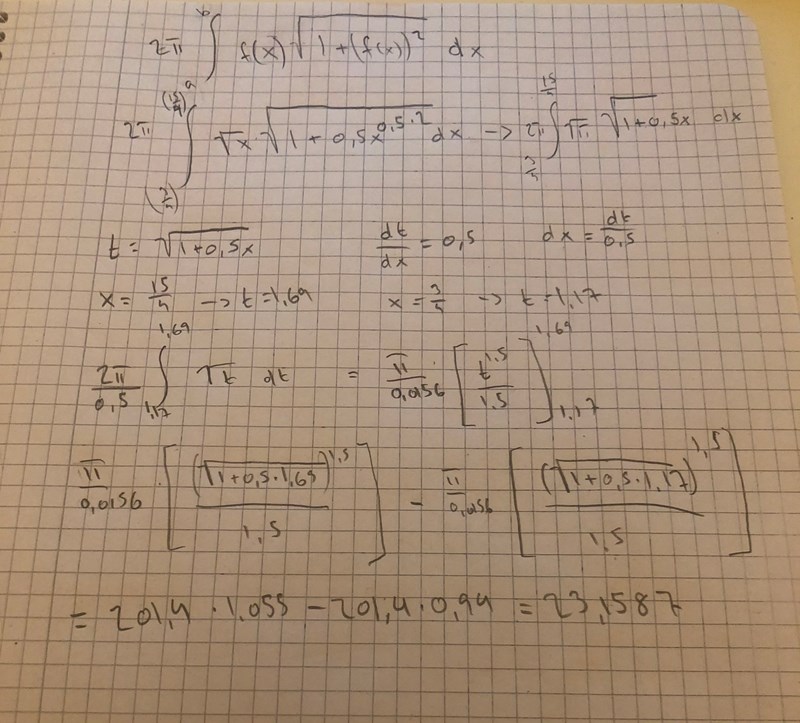 2π ∫ᵃ f(x) √(1+(f(x))²) dx
2π ∫_(3/4)^(15/4)ᵃ √x √(1+0,5x^(0,5·2)) dx -> 2π ∫_(3/4)^(15/4) √π √(1+0,5x) dx
t = √(1+0,5x) dt/dx = 0,5 dx = dt/0,5
x = 15/4 -> t=1,69 x = 3/4 -> t=1,17
2π/0,5 ∫_1,17^1,69 √t dt = π/0,0156 [t^1.5/1.5]_1,17^1,69
π/0,0156 [(√(1+0,5·1,69))^1.5/1,5] - π/0,0156 [(√(1+0,5·1,17))^1,5/1,5]
= 201,4 · 1.055 - 201,4 · 0,94 = 23,1587